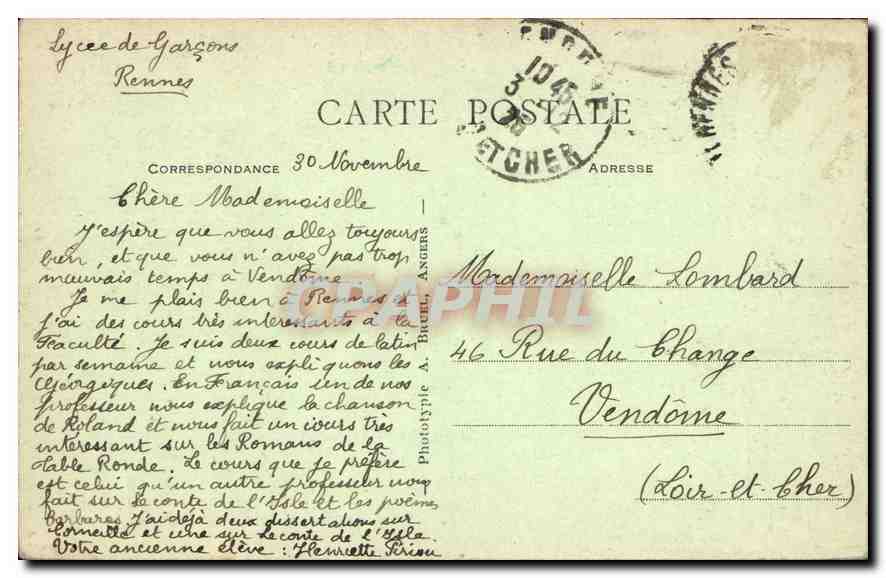 Lycee de Garçons
Rennes
CARTE POSTALE
10 45
3 12
ET CHER
RENNES
CORRESPONDANCE 30 Novembre
ADRESSE
Chère Mademoiselle
J'espère que vous allez toujours
bien, et que vous n'avez pas trop
mauvais temps à Vendôme
Je me plais bien à Rennes et
j'ai des cours très intéressants à la
Faculté. Je suis deux cours de latin
par semaine et nous expliquons les
Géorgiques. En Français un de nos
professeur nous explique la chanson
de Roland et nous fait un cours très
intéressant sur les Romans de la
Table Ronde. Le cours que je préfère
est celui qu'un autre professeur nous
fait sur Leconte de l'Isle et les poèmes
barbares. J'ai déjà deux dissertations sur
Corneille et une sur Leconte de l'Isle.
Votre ancienne élève : Henriette
Phototypie A. BRUEL, ANGERS —
Mademoiselle Lombard
46 Rue du Change
Vendôme
(Loir-et-Cher)
CPAPHIL